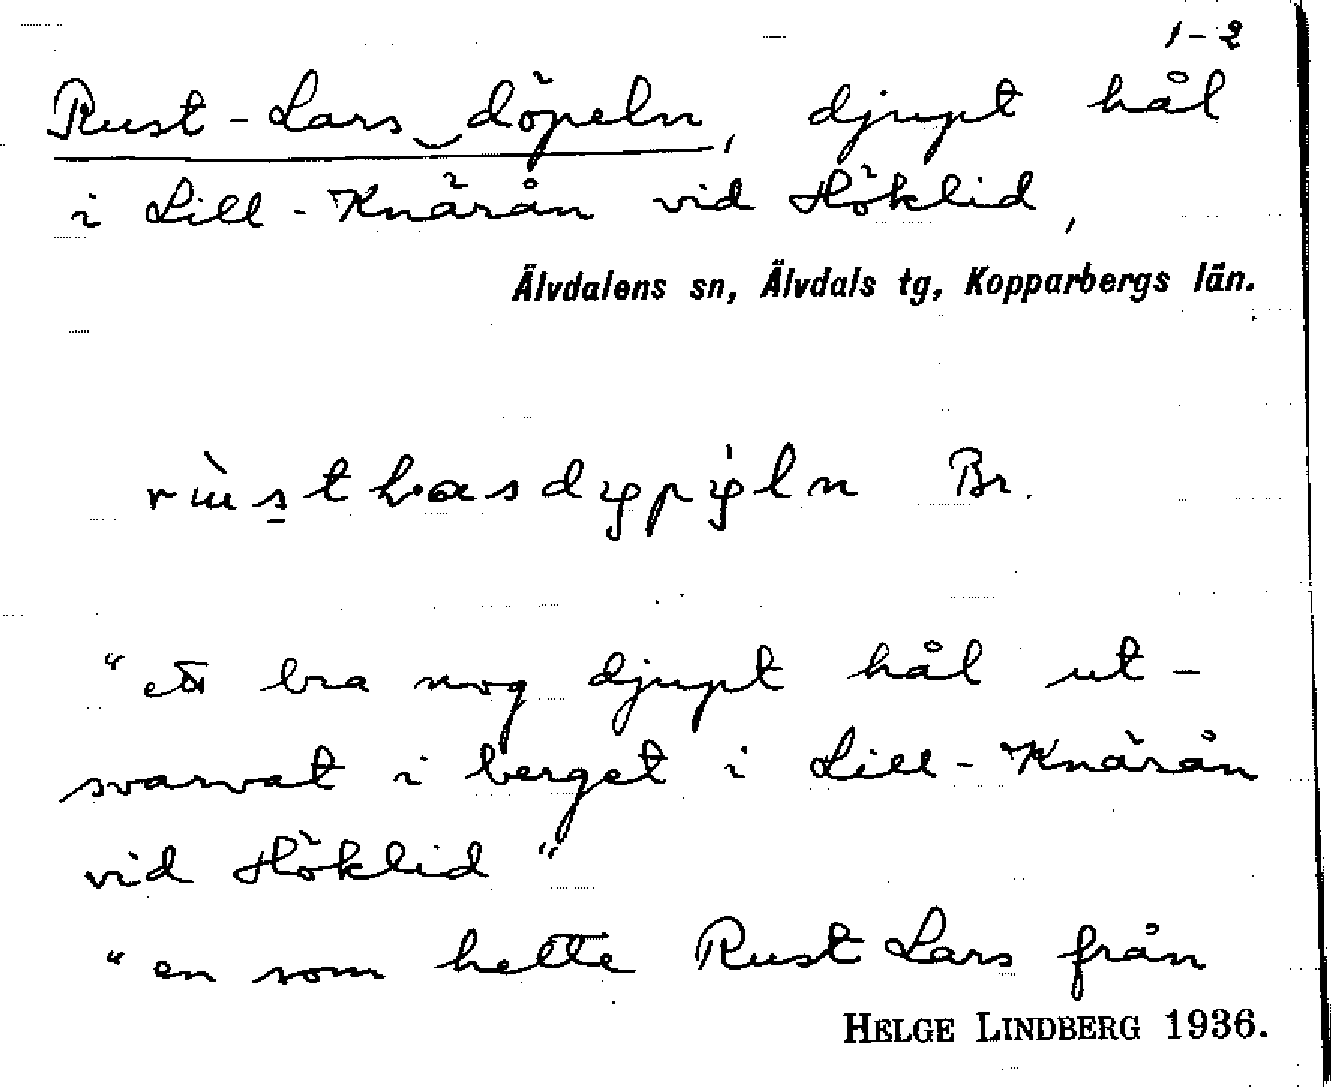 1-2
Rust-Lars döpeln, djupt hål
i Lill-Knärån vid Höklid,
Älvdalens sn, Älvdals tg, Kopparbergs län.
Br.
"ett bra nog djupt hål ut-
svarvat i berget i Lill-Knärån
vid Höklid"
"en som hette Rust Lars från
HELGE LINDBERG 1936.